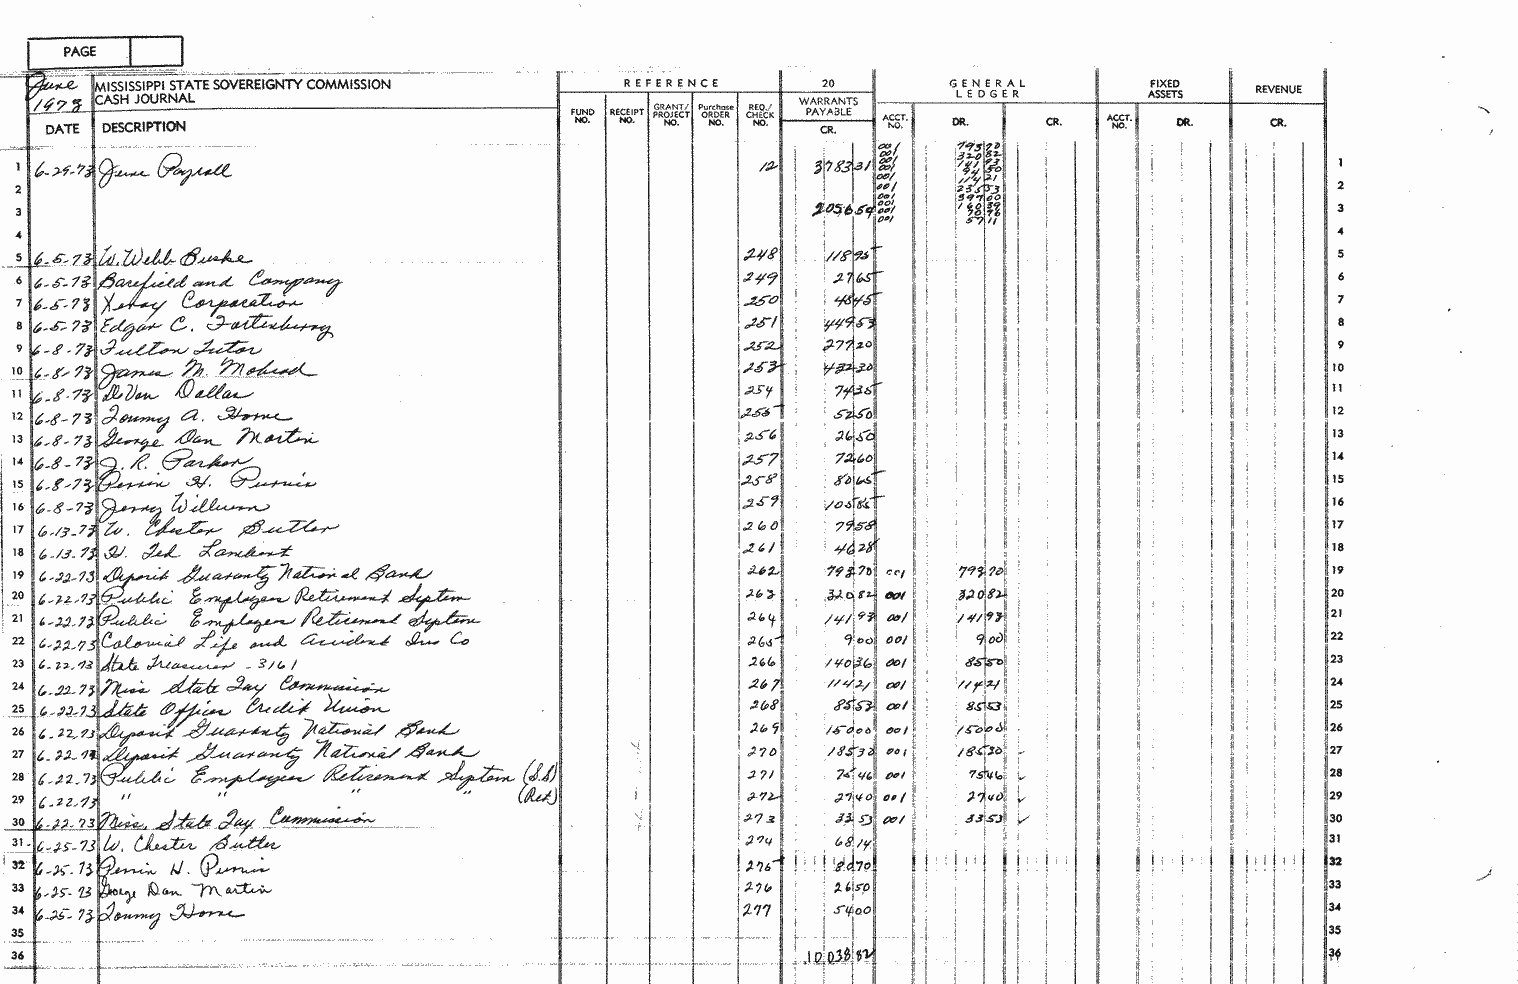 PAGE
June 1973 MISSISSIPPI STATE SOVEREIGNTY COMMISSION CASH JOURNAL
REFERENCE 20 GENERAL LEDGER FIXED ASSETS REVENUE
DATE DESCRIPTION FUND NO. RECEIPT NO. GRANT/PROJECT NO. Purchase ORDER NO. REQ./CHECK NO. WARRANTS PAYABLE CR. ACCT. NO. DR. CR. ACCT. NO. DR. CR.
001 793 70
001 320 82
001 141 93
001 94 50
1 6-29-73 June Payroll 12 3783 31 1
001 114 21
2 001 235 53 2
001 397 00
3 2056 54 001 160 39 3
001 70 76
001 57 11
4 4
5 6-5-73 W. Webb Burke 248 118 95 5
6 6-5-73 Barefield and Company 249 27 65 6
7 6-5-73 Xerox Corporation 250 48 45 7
8 6-5-73 Edgar C. Fortenberry 251 449 53 8
9 6-8-73 Fulton Tutor 252 277 20 9
10 6-8-73 James M. Mohead 253 432 30 10
11 6-8-73 DeVan Dallas 254 74 35 11
12 6-8-73 Tommy A. Horne 255 52 50 12
13 6-8-73 George Dan Martin 256 26 50 13
14 6-8-73 J. R. Parker 257 72 60 14
15 6-8-73 Perrin H. Purvis 258 80 65 15
16 6-8-73 Jerry Wilburn 259 105 85 16
17 6-13-73 W. Chester Butler 260 79 58 17
18 6-13-73 H. Ted Lambert 261 46 28 18
19 6-22-73 Deposit Guaranty National Bank 262 793 70 001 793 70 19
20 6-22-73 Public Employees Retirement System 263 320 82 001 320 82 20
21 6-22-73 Public Employees Retirement System 264 141 93 001 141 93 21
22 6-22-73 Colonial Life and Accident Ins Co 265 9 00 001 9 00 22
23 6-22-73 State Treasurer - 3161 266 140 36 001 85 50 23
24 6-22-73 Miss State Tax Commission 267 114 21 001 114 21 24
25 6-22-73 State Offices Credit Union 268 85 53 001 85 53 25
26 6-22-73 Deposit Guaranty National Bank 269 150 00 001 150 00 26
27 6-22-73 Deposit Guaranty National Bank 270 185 30 001 185 30 ✓ 27
28 6-22-73 Public Employees Retirement System (S.S) 271 75 46 001 75 46 ✓ 28
29 6-22-73 " " " " (Ret) 272 27 40 001 27 40 ✓ 29
30 6-22-73 Miss. State Tax Commission 273 33 53 001 33 53 ✓ 30
31 6-25-73 W. Chester Butler 274 68 14 31
32 6-25-73 Perrin H. Purvis 275 80 70 32
33 6-25-73 George Dan Martin 276 26 50 33
34 6-25-73 Tommy Horne 277 54 00 34
35 35
36 10 038 82 36